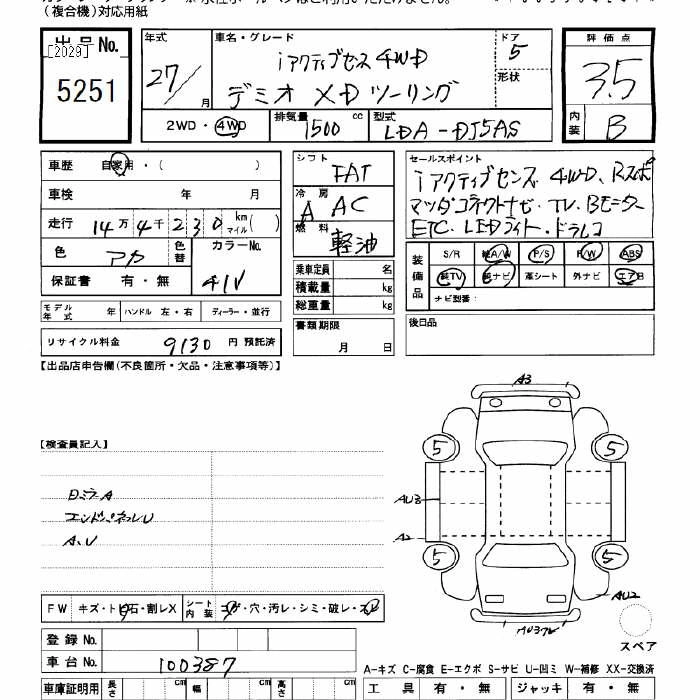 (複合機)対応用紙
出品No. [2029] 5251
年式 27/ 月
車名・グレード iアクティブセンス 4WD
デミオ XD ツーリング
ドア 5
形状
2WD・4WD
排気量 1500 cc
型式 LDA-DJ5AS
評価点 3.5
内装 B
車歴 自家用・( )
車検 年 月
走行 14万4千230km マイル( )
色 アカ 色替 カラーNo. 41V
保証書 有・無
モデル年式 年 ハンドル 左・右 ディーラー・並行
リサイクル料金 9130 円 預託済
シフト FAT
冷房 A AC
燃料 軽油
乗車定員 名
積載量 kg
総重量 kg
書類期限 月 日
セールスポイント
iアクティブセンス、4WD、Rスポ
マツダコネクトナビ・TV、Bモニター
ETC、LEDライト・ドラレコ
装備品 S/R 純A/W P/S P/W ABS
純TV 純ナビ 革シート 外ナビ エアB
ナビ型番:
後日品
【出品店申告欄(不良箇所・欠品・注意事項等)】
【検査員記入】
ロミラA
エンドパネルU
A、U
A3
5 5
AU3
A2
5 5
AU2
スペア
FW キズ・トビ石・割レX シート内装 コゲ・穴・汚レ・シミ・破レ・スレ
登録No.
車台No. 100387
車庫証明用 長さ cm 幅 cm 高さ cm
A-キズ C-腐食 E-エクボ S-サビ U-凹ミ W-補修 XX-交換済
工具 有・無 ジャッキ 有・無